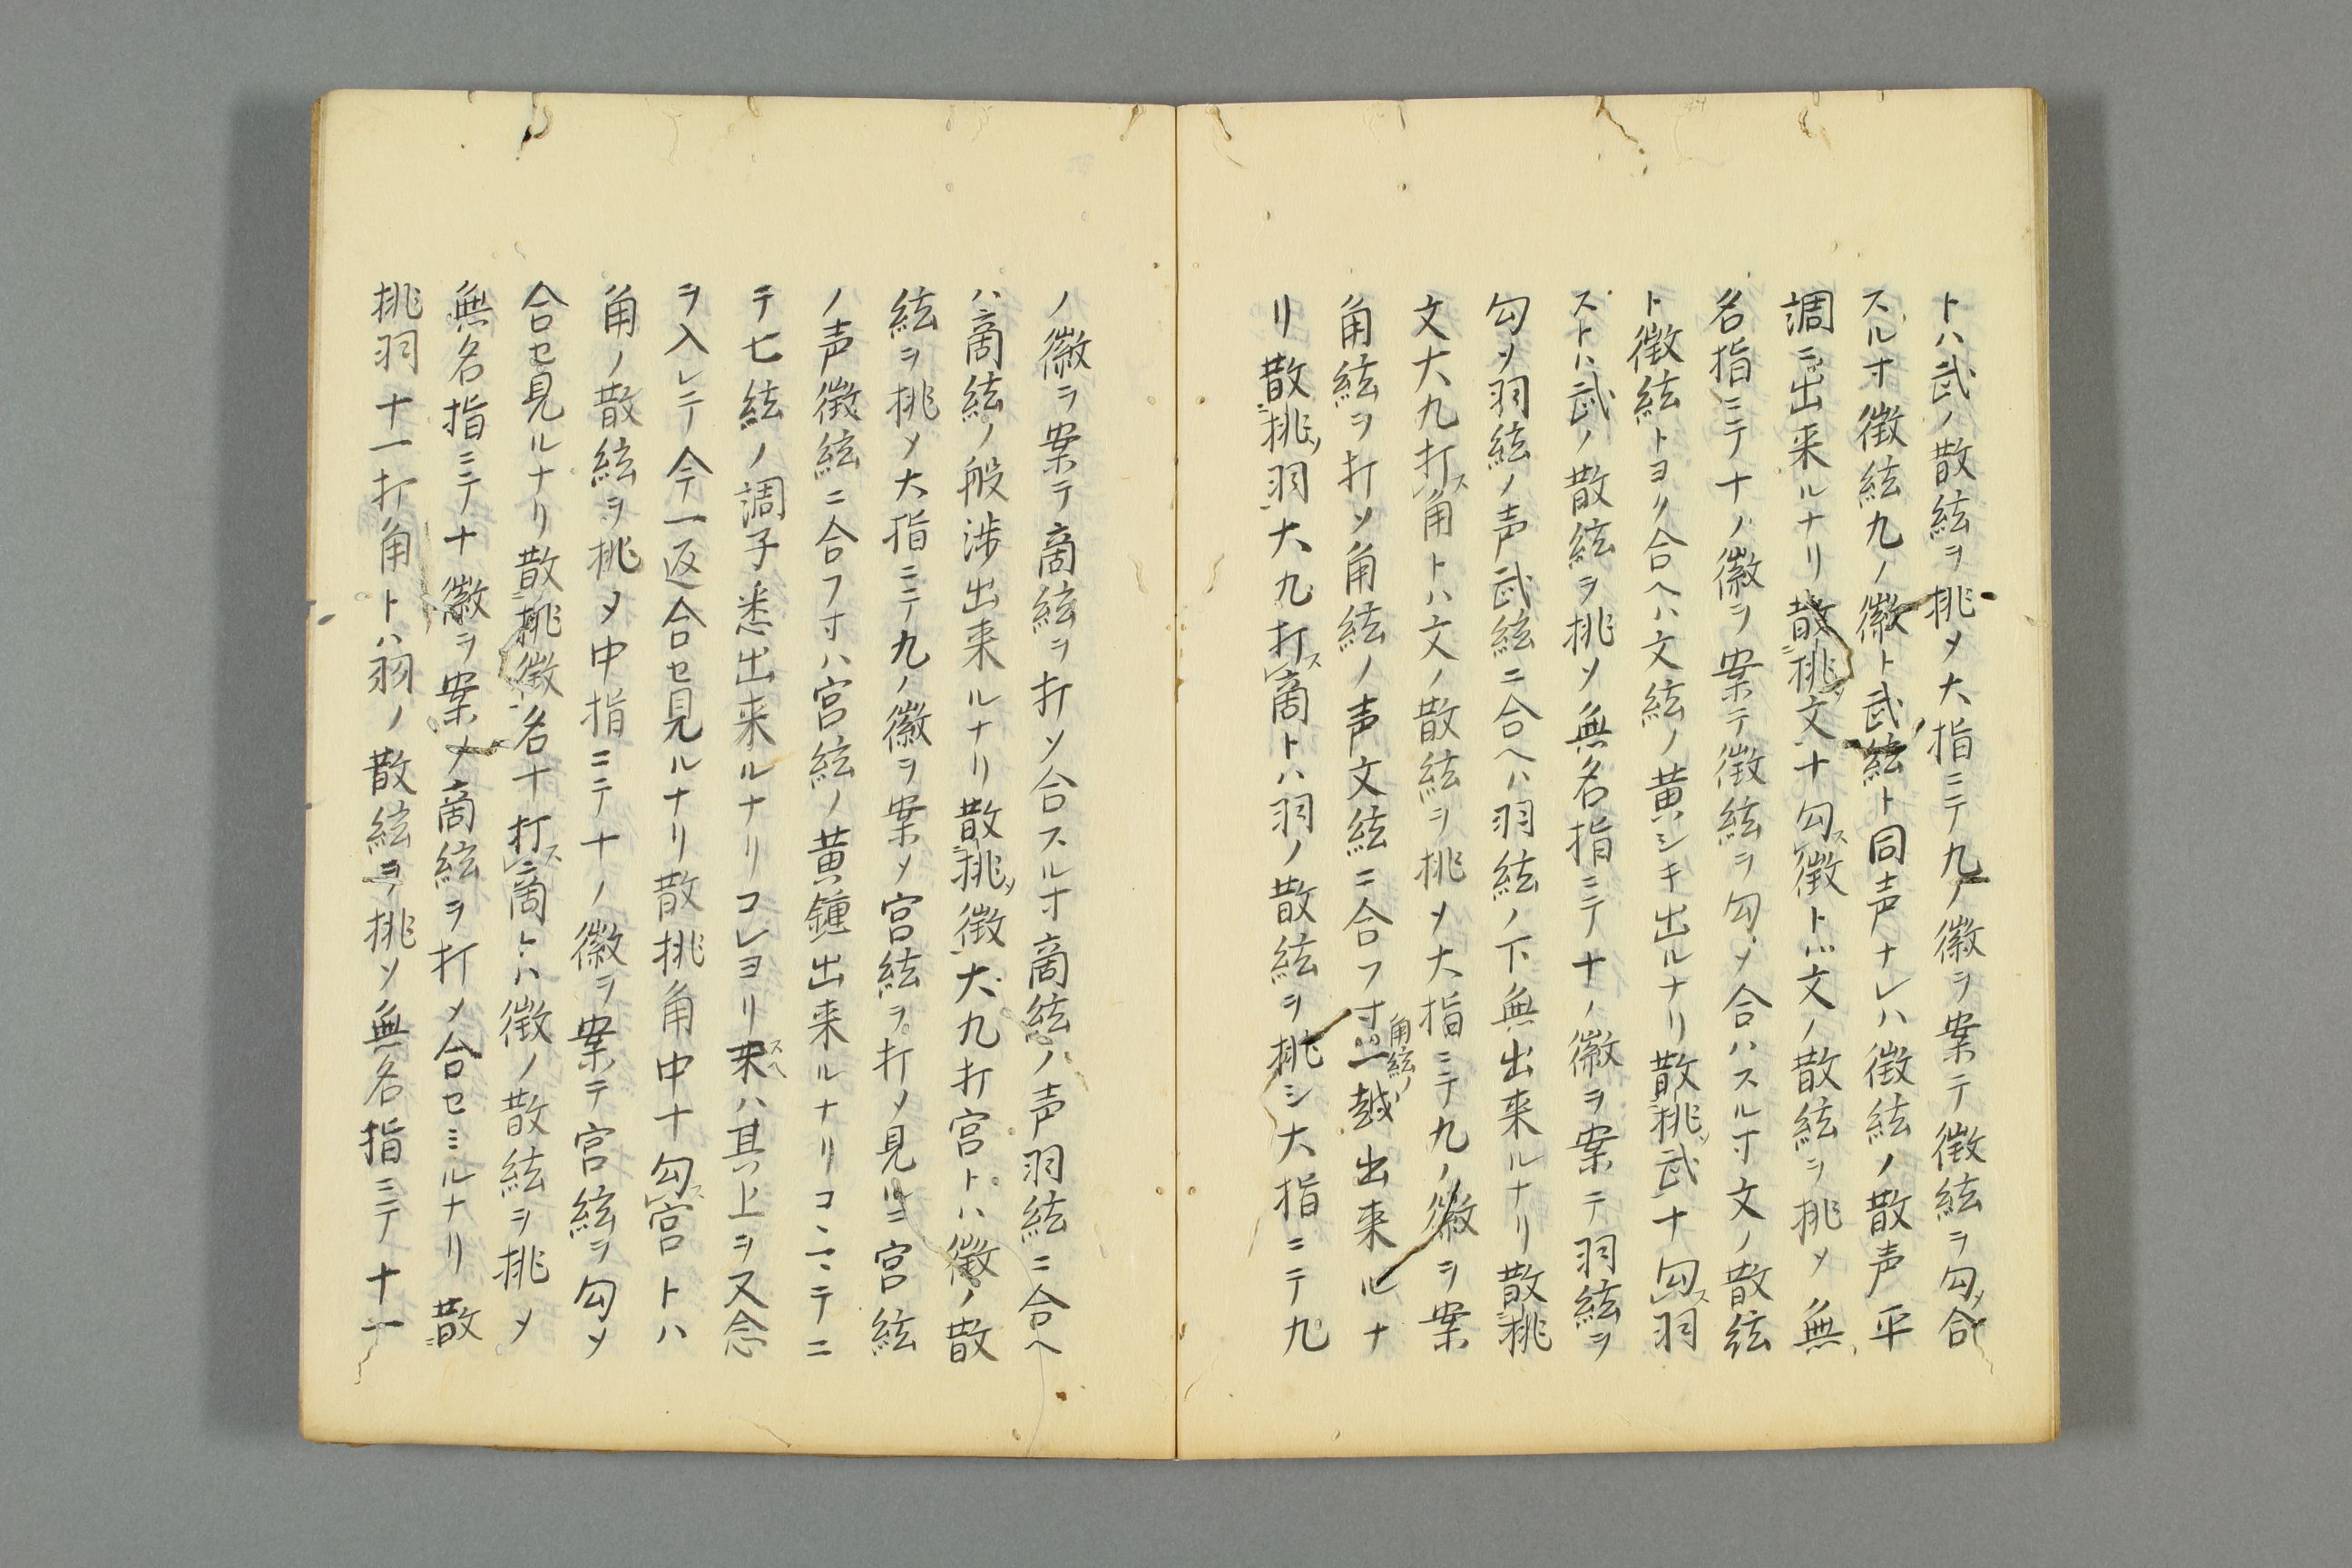 トハ武ノ散絃ヲ挑メ大指ニテ九ノ徽ヲ案テ徴絃ヲ勾メ合
スルオ徴絃九ノ徽ト武絃ト同声ナレハ徴絃ノ散声平
調ニ出来ルナリ散挑文十勾ス徴トハ文ノ散絃ヲ挑メ無
名指ニテ十ノ徽ヲ案テ徴絃ヲ勾メ合ハスルオ文ノ散絃
ト徴絃トヨリ合ヘハ文絃ノ黄シキ出ルナリ散挑武十勾ス羽
ストハ武ノ散絃ヲ挑メ無名指ニテ十ノ徽ヲ案テ羽絃ヲ
勾メ羽絃ノ声武絃ニ合ヘハ羽絃ノ下無出来ルナリ散挑
文大九打ス角トハ文ノ散絃ヲ挑メ大指ニテ九ノ徽ヲ案
角絃ヲ打メ角絃ノ声文絃ニ合フオ角絃ノ一越出来ルナ
リ散挑羽大九打ス商トハ羽ノ散絃ヲ挑シ大指ニテ九
ノ徽ヲ案テ商絃ヲ打メ合スルオ商絃ノ声羽絃ニ合ヘ
ハ商絃ノ般渉出来ルナリ散挑徴大九打宮トハ徴ノ散
絃ヲ挑メ大指ニテ九ノ徽ヲ案メ宮絃ヲ打メ見ルニ宮絃
ノ声徴絃ニ合フオハ宮絃ノ黄鐘出来ルナリコヽニテニ
テ七絃ノ調子悉出来ルナリコレヨリ末スヘハ其上ヲ又念
ヲ入レテ今一返合セ見ルナリ散挑角中十勾ス宮トハ
角ノ散絃ヲ挑メ中指ニテ十ノ徽ヲ案テ宮絃ヲ勾メ
合セ見ルナリ散挑徴名十打ス商トハ徴ノ散絃ヲ挑メ
無名指ニテ十徽ヲ案メ商絃ヲ打メ合セミルナリ散
挑羽十一打角トハ羽ノ散絃ヲ挑メ無名指ニテ十一